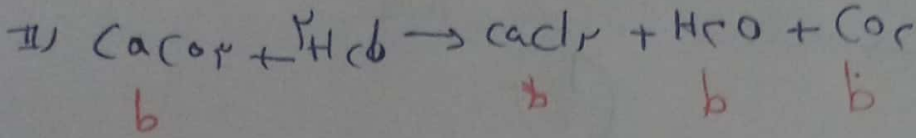 II) CaCo۳ + ۲Hcl → cacl۲ + H۲O + Co۲
b b b b